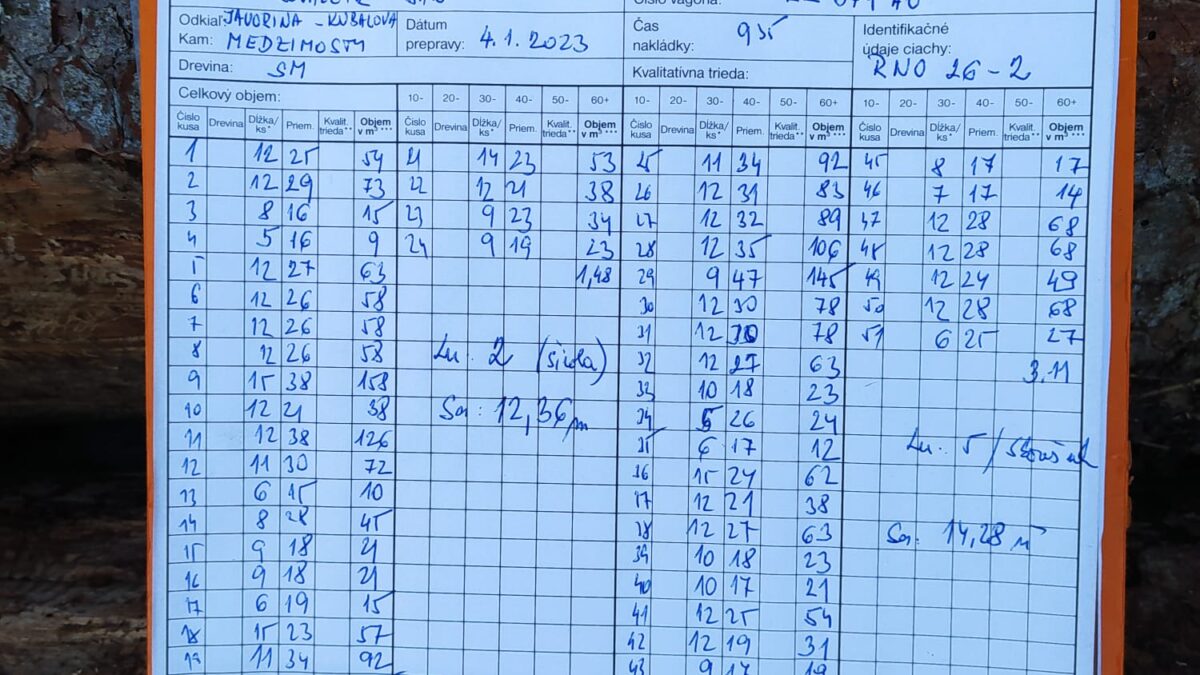 Odkiaľ: JAVORINA - KUBALOVA Dátum prepravy: 4.1.2023 Čas nakládky: 935 Identifikačné údaje ciachy: RNO 26-2
Kam: MEDZIMOSTY
Drevina: SM Kvalitatívna trieda:
Celkový objem: 10- 20- 30- 40- 50- 60+ 10- 20- 30- 40- 50- 60+ 10- 20- 30- 40- 50- 60+
Číslo kusa Drevina Dĺžka/ks* Priem. Kvalit. trieda** Objem v m³*** Číslo kusa Drevina Dĺžka/ks* Priem. Kvalit. trieda** Objem v m³*** Číslo kusa Drevina Dĺžka/ks* Priem. Kvalit. trieda** Objem v m³*** Číslo kusa Drevina Dĺžka/ks* Priem. Kvalit. trieda** Objem v m³***
1 12 25 54 21 14 23 53 25 11 34 92 45 8 17 17
2 12 29 73 22 12 21 38 26 12 31 83 46 7 17 14
3 8 16 15 23 9 23 34 27 12 32 89 47 12 28 68
4 5 16 9 24 9 19 23 28 12 35 106 48 12 28 68
5 12 27 63 1,48 29 9 47 145 49 12 24 49
6 12 26 58 30 12 30 78 50 12 28 68
7 12 26 58 31 12 30 78 51 6 25 27
8 12 26 58 2 32 12 27 63 3.11
9 15 38 158 33 10 18 23
10 12 21 38 12,36 34 5 26 24
11 12 38 126 35 6 17 12 5
12 11 30 72 36 15 24 62
13 6 15 10 37 12 21 38
14 8 28 45 38 12 27 63 14,28
15 9 18 21 39 10 18 23
16 9 18 21 40 10 17 21
17 6 19 15 41 12 25 54
18 15 23 57 42 12 19 31
19 11 34 92 43 9 17 19